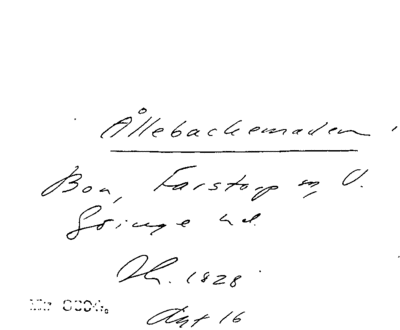 Ållebackemaden
Bon, Farstorp sn, V.
Göinge hd.
Jk. 1828
Akt 16